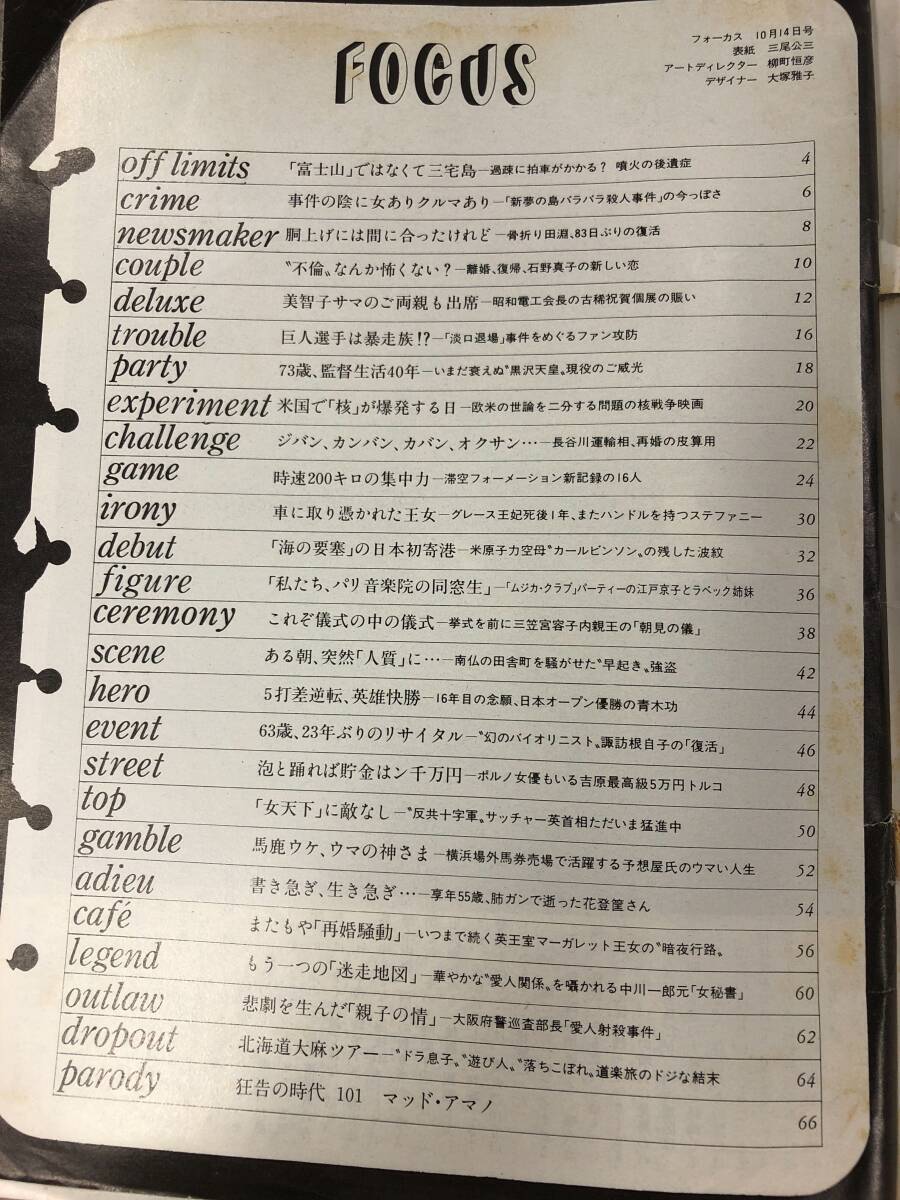 FOCUS
フォーカス 10月14日号
表紙 三尾公三
アートディレクター 柳町恒彦
デザイナー 大塚雅子
off limits 「富士山」ではなくて三宅島―過疎に拍車がかかる? 噴火の後遺症 4
crime 事件の陰に女ありクルマあり―「新夢の島バラバラ殺人事件」の今っぽさ 6
newsmaker 胴上げには間に合ったけれど―骨折り田淵、83日ぶりの復活 8
couple 〝不倫〟なんか怖くない?―離婚、復帰、石野真子の新しい恋 10
deluxe 美智子サマのご両親も出席―昭和電工会長の古稀祝賀個展の賑い 12
trouble 巨人選手は暴走族!?―「淡口退場」事件をめぐるファン攻防 16
party 73歳、監督生活40年―いまだ衰えぬ〝黒沢天皇〟現役のご威光 18
experiment 米国で「核」が爆発する日―欧米の世論を二分する問題の核戦争映画 20
challenge ジバン、カンバン、カバン、オクサン…―長谷川運輸相、再婚の皮算用 22
game 時速200キロの集中力―滞空フォーメーション新記録の16人 24
irony 車に取り憑かれた王女―グレース王妃死後1年、またハンドルを持つステファニー 30
debut 「海の要塞」の日本初寄港―米原子力空母〝カールビンソン〟の残した波紋 32
figure 「私たち、パリ音楽院の同窓生」―「ムジカ・クラブ」パーティーの江戸京子とラベック姉妹 36
ceremony これぞ儀式の中の儀式―挙式を前に三笠宮容子内親王の「朝見の儀」 38
scene ある朝、突然「人質」に…―南仏の田舎町を騒がせた〝早起き〟強盗 42
hero 5打差逆転、英雄快勝―16年目の念願、日本オープン優勝の青木功 44
event 63歳、23年ぶりのリサイタル―〝幻のバイオリニスト〟諏訪根自子の「復活」 46
street 泡と踊れば貯金はン千万円―ポルノ女優もいる吉原最高級5万円トルコ 48
top 「女天下」に敵なし―〝反共十字軍〟サッチャー英首相ただいま猛進中 50
gamble 馬鹿ウケ、ウマの神さま―横浜場外馬券売場で活躍する予想屋氏のウマい人生 52
adieu 書き急ぎ、生き急ぎ…―享年55歳、肺ガンで逝った花登筐さん 54
café またもや「再婚騒動」―いつまで続く英王室マーガレット王女の〝暗夜行路〟 56
legend もう一つの「迷走地図」―華やかな〝愛人関係〟を囁かれる中川一郎元「女秘書」 60
outlaw 悲劇を生んだ「親子の情」―大阪府警巡査部長「愛人射殺事件」 62
dropout 北海道大麻ツアー―〝ドラ息子〟〝遊び人〟〝落ちこぼれ〟道楽旅のドジな結末 64
parody 狂告の時代 101 マッド・アマノ 66